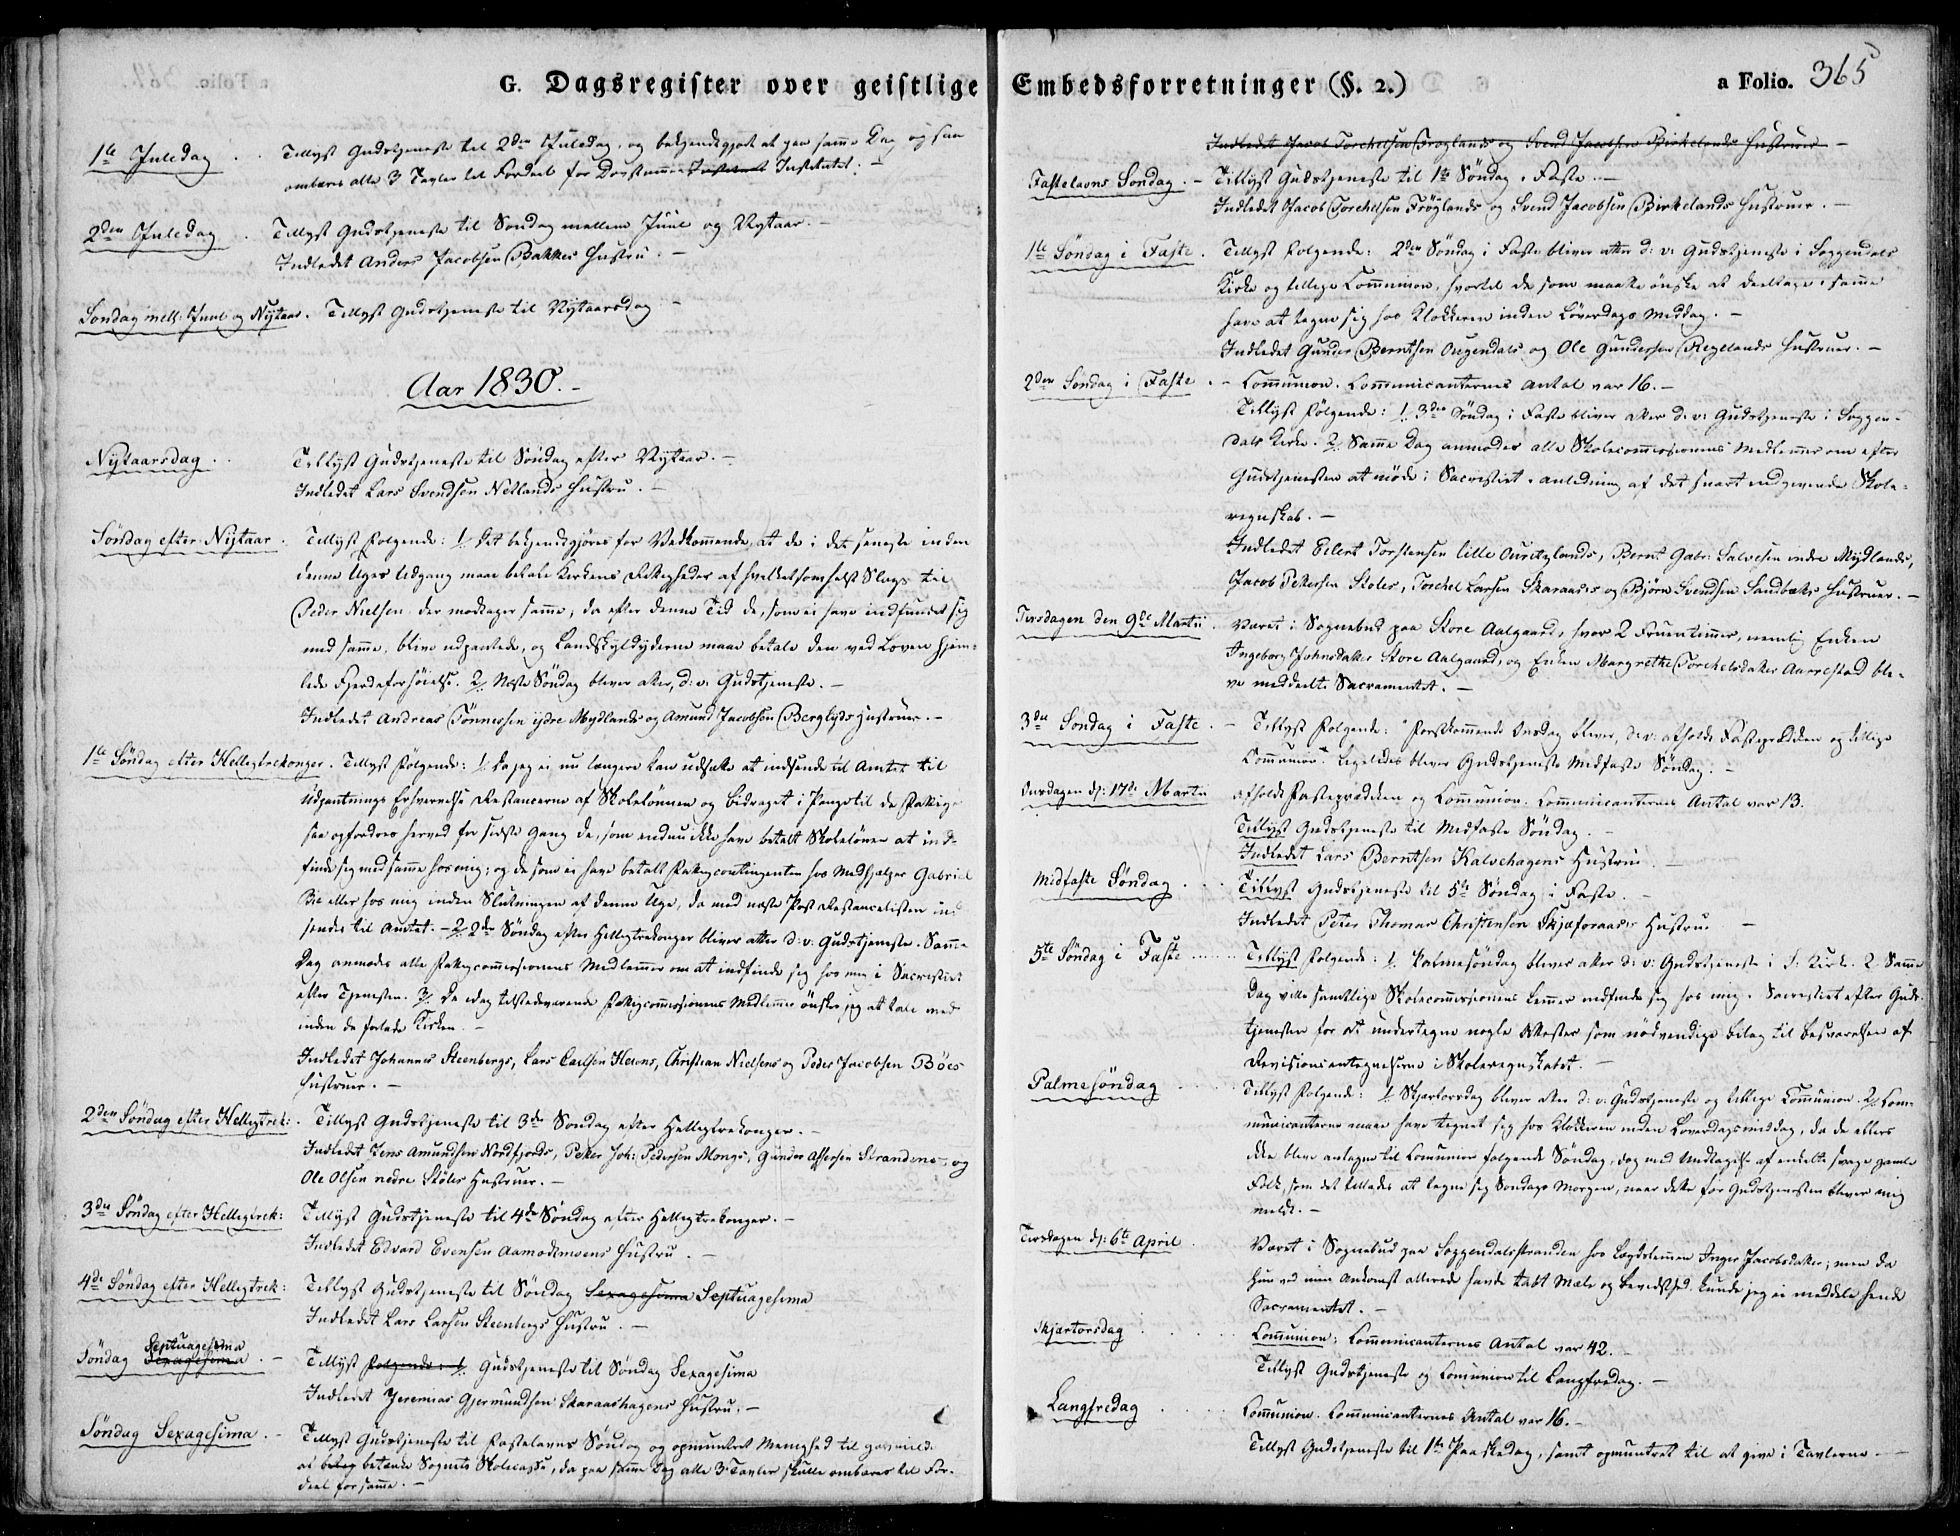 G. Dagsregister over geistlige Embedsforretninger (§. 2.)
a Folio. 365
1te Juledag . . Tillyst Gudstjeneste til 2den Juledag, og bekjendtgjort at paa samme Dag og saa
ombæres alle 3 Tavler til Fordeel for Døvstumme Institutet. –
2den Juledag . Tillyst Gudstjeneste til Søndag mellem Juul og Nytaar.
Indledet Anders Jacobsen Bakkes Hustru. –
Søndag mell: Juul og Nytaar. Tillyst Gudstjeneste til Nytaarsdag. –
Aar 1830. –
Nytaarsdag . . Tillyst Gudstjeneste til Søndag efter Nytaar. –
Indledet Lars Svendsen Netlands Hustru. –
Søndag efter Nytaar . Tillyst Følgende: 1/. Det bekjendtgjøres for Vedkommende, at de i det seneste inden
denne Uges Udgang maae betale Kirkens Rettigheder af hvilketsomhelst Slags til
Peder Nielsen, der modtager samme, da efter denne Tid de, som ei have indfundet sig
med samme, blive udpantede, og Landskyldyderne maae betale den ved Loven hjem-
lede Fjerdeforhøielse. 2/. Næste Søndag bliver atter, d: v: Gudstjeneste. –
Indledet Andreas Tønnessen ydre Mydlands og Asmund Jacobsen Berglyds Hustruer. –
1te Søndag efter Helligtrekonger. Tillyst Følgende: 1/. Da jeg ei nu længere kan udsætte at indsende til Amtet til
Udpantnings Erhvervelse Restancerne af Skolelønnen og Bidraget i Penge til de Fattige
saa opfordres herved for sidste Gang de, som endnu ikke have betalt Skolelønnen at ind-
finde sig med samme hos mig; og de som ei have betalt Fattigcontingenten hos Medhjælper Gabriel
Bøe eller hos mig inden Slutningen af denne Uge, da med næste Post Restancelisten ind
sendes til Amtet. – 2/. 2den Søndag efter Helligtrekonger bliver atter d: v: Gudstjeneste. Samme
Dag anmodes alle Fattigcommissionens Medlemmer om at indfinde sig hos mig i Sacristiet
efter Tjenesten. 3/. De idag tilstedeværende Fattigcommissionens Medlemmer ønsker jeg at tale med
inden de forlade Kirken. –
Indledet Johannes Steenbergs, Lars Carlsen , Christian Nielsens og Peder Jacobsen Böes
Hustruer. –
2den Søndag efter Helligtrek: . Tillyst Gudstjeneste til 3die Søndag efter Helligtrekonger. –
Indledet Jens Amundsen Nordfjords, Petter Joh: Pedersen Mongs, Gunder Assersen Strandens, og
Ole Olsen nedre Stöles Hustruer. –
3die Søndag efter Helligtrek: Tillyst Gudstjeneste til 4de Søndag efter Helligtrekonger. –
Indledet Edvard Evensen Aamodtmoens Hustru. –
4de Søndag efter Helligtrek: Tillyst Gudstjeneste til Søndag Sexagesima Septuagesima
Indledet Lars Larsen Steenbergs Hustru. –
Søndag Septuagesima Sexagesima . – Tillyst Følgende: 1/. Gudstjeneste til Søndag Sexagesima
Indledet Jeremias Gjermundsen Skaraashagens Hustru. –
Søndag Sexagesima . – Tillyst Gudstjeneste til Fastelavns Søndag og opmuntret Menighed til gavmild.
at betænke Sognets Skolecasse, da paa samme Dag alle 3 Tavler skulle ombæres til For-
deel for samme. –
Indledet Jacob Torchelsen Frøglands og Svend Jacobsen Birkelands Hustruer –
Fastelavns Søndag . – Tillyst Gudstjeneste til 1te Søndag i Faste. –
Indledet Jacob Torchelsen Frøglands og Svend Jacobsen Birkelands Hustruer. –
1te Søndag i Faste . Tillyst Følgende: 2den Søndag i Faste bliver atter d: v: Gudstjeneste i Soggendals
Kirke og tillige Communion, hvortil de som maatte ønske at deeltage i samme
have at tegne sig hos Klokkeren inden Løverdags Middag. –
Indledet Gunder Berntsen Ougendals og Ole Gundersen Regelands Hustruer. –
2den Søndag i Faste . – Communion. Communicanternes Antal var 16. –
Tillyst Følgende: 1/. 3die Søndag i Faste bliver atter d: v: Gudstjeneste i Soggen-
dals Kirke. 2/. Samme Dag anmodes alle Skolecommissionens Medlemmer om efter
Gudstjenesten at møde i Sacristiet i anledning af det snart indgivende Skole-
regnskab. –
Indledet Eilert Torstensen lille Ouritzlands, Bernt Gabr: Salvesen indre Mydlands,
Jacob Pettersen Stoles, Torchel Larsen Skaraases og Bjørn Svendsen Sandbæks Hustruer. –
Tirsdagen den 9de Martii . Været i Sognebud paa Store Aalgaard, hvor 2 Fruentimmer, nemlig Enken
Ingeborg Johnsdatter Store Aalgaard, og Enken Margrethe Torchelsdatter Aarrestad ble-
ve meddeelte Sacramentet. –
3die Søndag i Faste . – Tillyst Følgende: Førstkommende Onsdag bliver, d: v: afholdt Fasteprædiken og tillige
Communion. Ligeledes bliver Gudstjeneste Midfaste Søndag. –
Onsdagen d: 17de Martii afholdt Fasteprædiken og Communion. Communicanternes Antal var 13.
Tillyst Gudstjeneste til Midfaste Søndag. –
Indledet Lars Berntsen Kalvehagens Hustru –
Midfaste Søndag . . Tillyst Gudstjeneste til 5te Søndag i Faste. –
Indledet Peter Thomas Christensen Skjæforaas's Hustru. –
5te Søndag i Faste . . . . . . Tillyst Følgende: 1/. Palmesøndag bliver atter d: v: Gudstjeneste i S: Kirke. 2. Samme
Dag ville samtlige Skolecommissionens Lemmer indfinde sig hos mig i Sacristiet efter Guds-
tjenesten for at undertegne nogle Attester som nødvendige bilag til besvarelsen af
Revisionsantegnelserne i Skoleregnskabet. –
Palmesøndag . . . . . Tillyst Følgende: 1/. Skjærtorsdag bliver atter d: v: Gudstjeneste og tillige Communion. 2/. Com-
municanterne maae have tegnet sig hos Klokkeren inden Løverdagsmiddag, da de ellers
ikke blive antagne til Communion følgende Søndag, dog med Undtagelse af enkelte svage gamle
Folk, som det tillades at tegne sig Søndags Morgen, naar dette før Gudstjenesten bliver mig
meldt. –
Tirsdagen d: 6te April . Været i Sognebud paa Soggendalsstranden hos Lægdslemmen Inger Jacobsdatter; men da
hun ved min Ankomst allerede havde tabt Mæle og Bevidsthed, kunde jeg ei meddele hende
Sacramentet. –
Skjærtorsdag . . . . Communion; Communicanternes Antal var 42. –
Tillyst Gudstjeneste og Communion til Langfredag. –
Langfredag . . . . Communion. Communicanternes Antal var 16. –
Tillyst Gudstjeneste til 1te Paaskedag, samt opmuntret til at give i Tavlerne. –